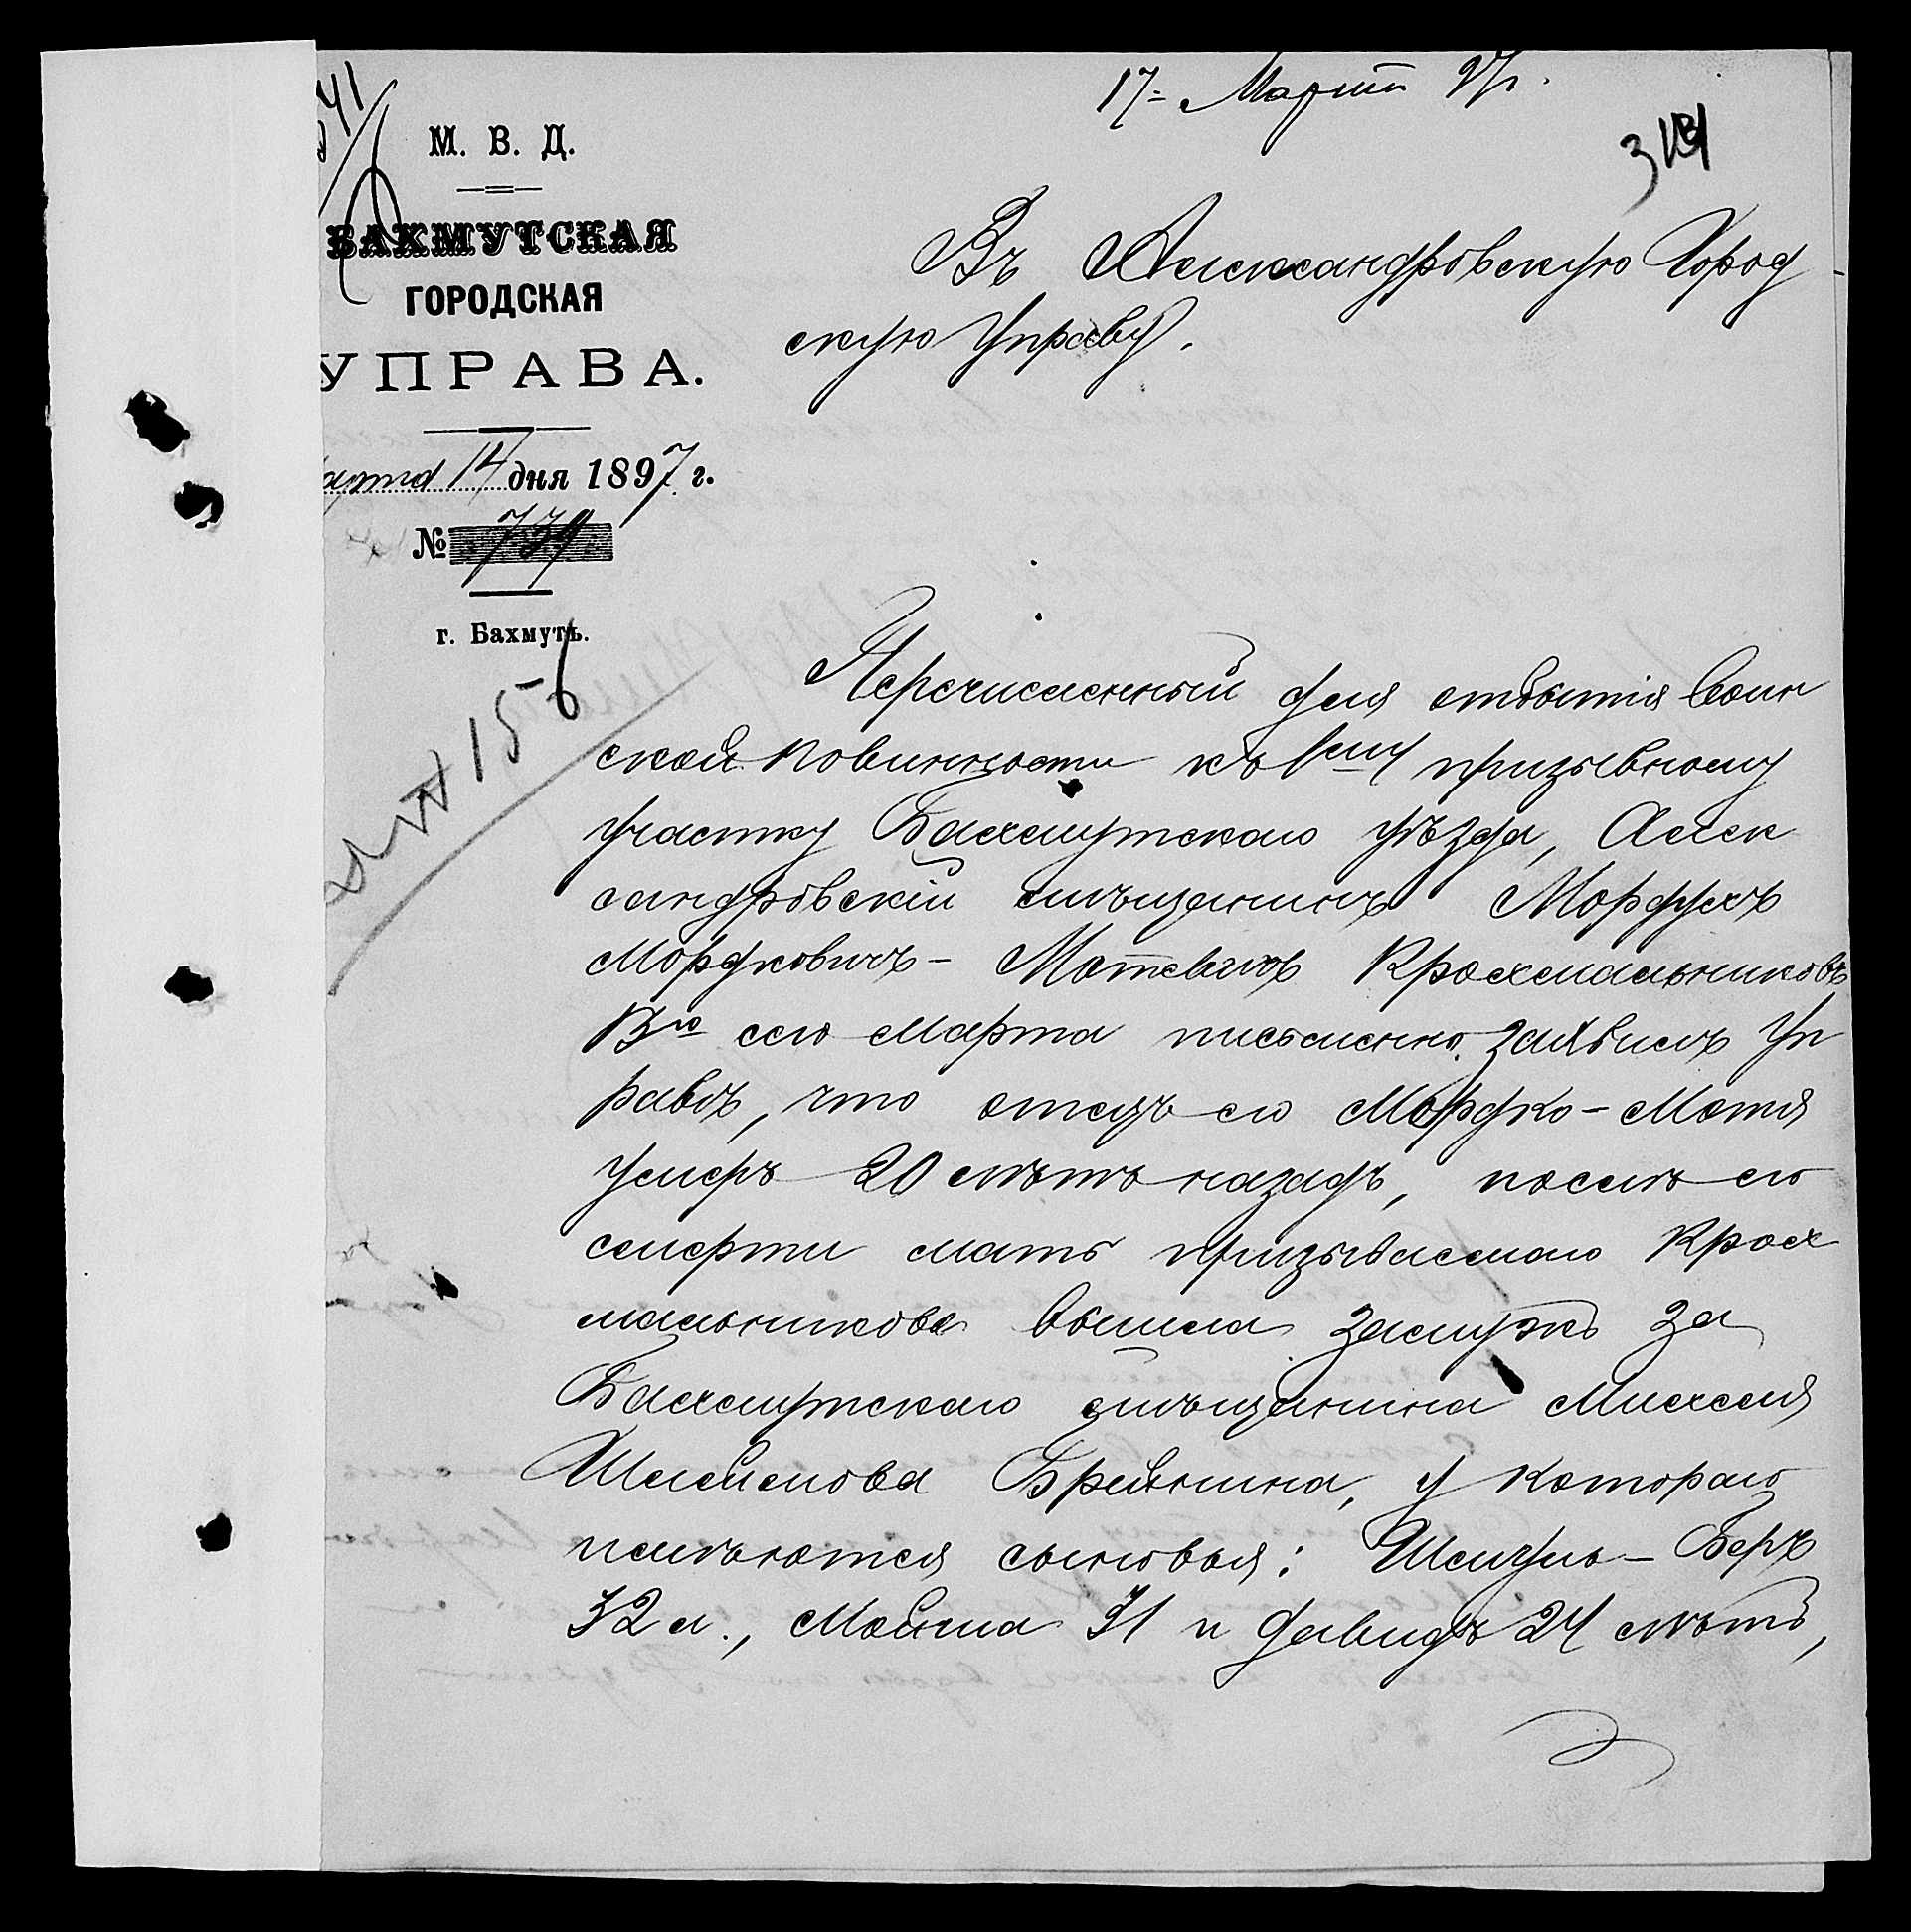 17 Марта 97 г.
М. В. Д.
БАХМУТСКАЯ
ГОРОДСКАЯ
УПРАВА.
арта 14 дня 1897 г.
№ 739
г. Бахмутъ.
156
Въ Александровскую Город-
скую Управу.
Перечисленный для отбытія воин
ской повинности къ 1му призывному
участку Бахмутскаго уѣзда, Алек
сандровскій мѣщанинъ Мордухъ
Мордковичъ-Мотевичъ Крохмальниковъ
сего Марта письменно заявилъ Уп
равѣ, что отецъ его Мордко-Мотя
умеръ 20 лѣтъ назадъ, послѣ его
смерти мать призываемаго Крох
мальникова вышла замужъ за
Бахмутскаго мѣщанина Михеля
Шлёмова Брейнина, у котораго
имѣются сыновья: Шмуль-Беръ
32 л., Мойша 31 и Давидъ 24 лѣтъ,